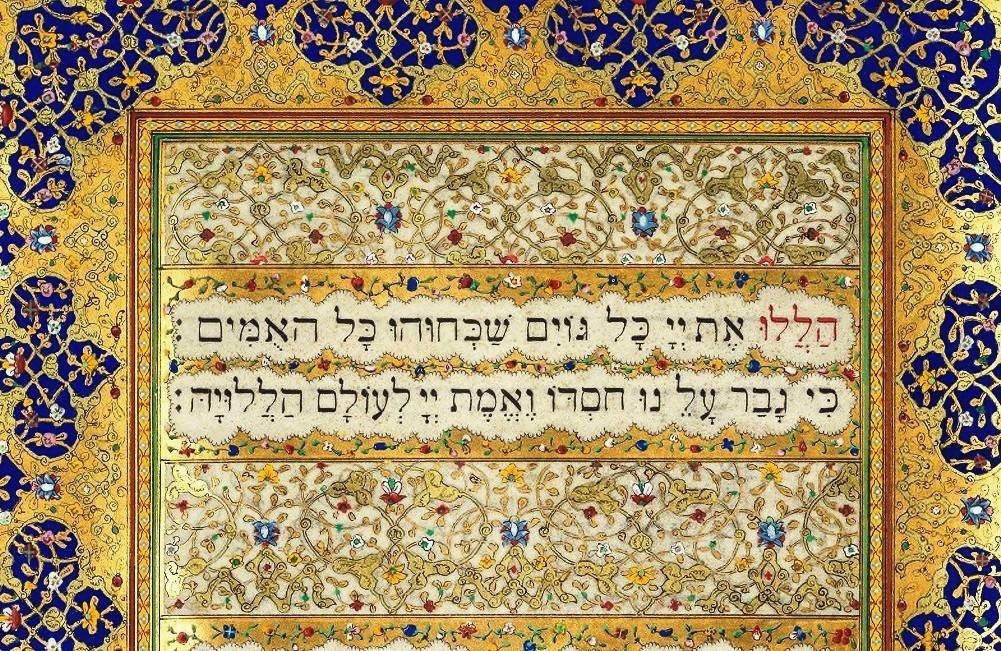 הַלְלוּ אֶת יְיָ כָּל גּוֹיִם שַׁבְּחוּהוּ כָּל האֻמִים :
כִּי גָבַר עָלֵ נוּ חסְדּוֹ וֶאֱמֶת יְיָ לְעוֹלָם הַלֲלוּיָהּ :